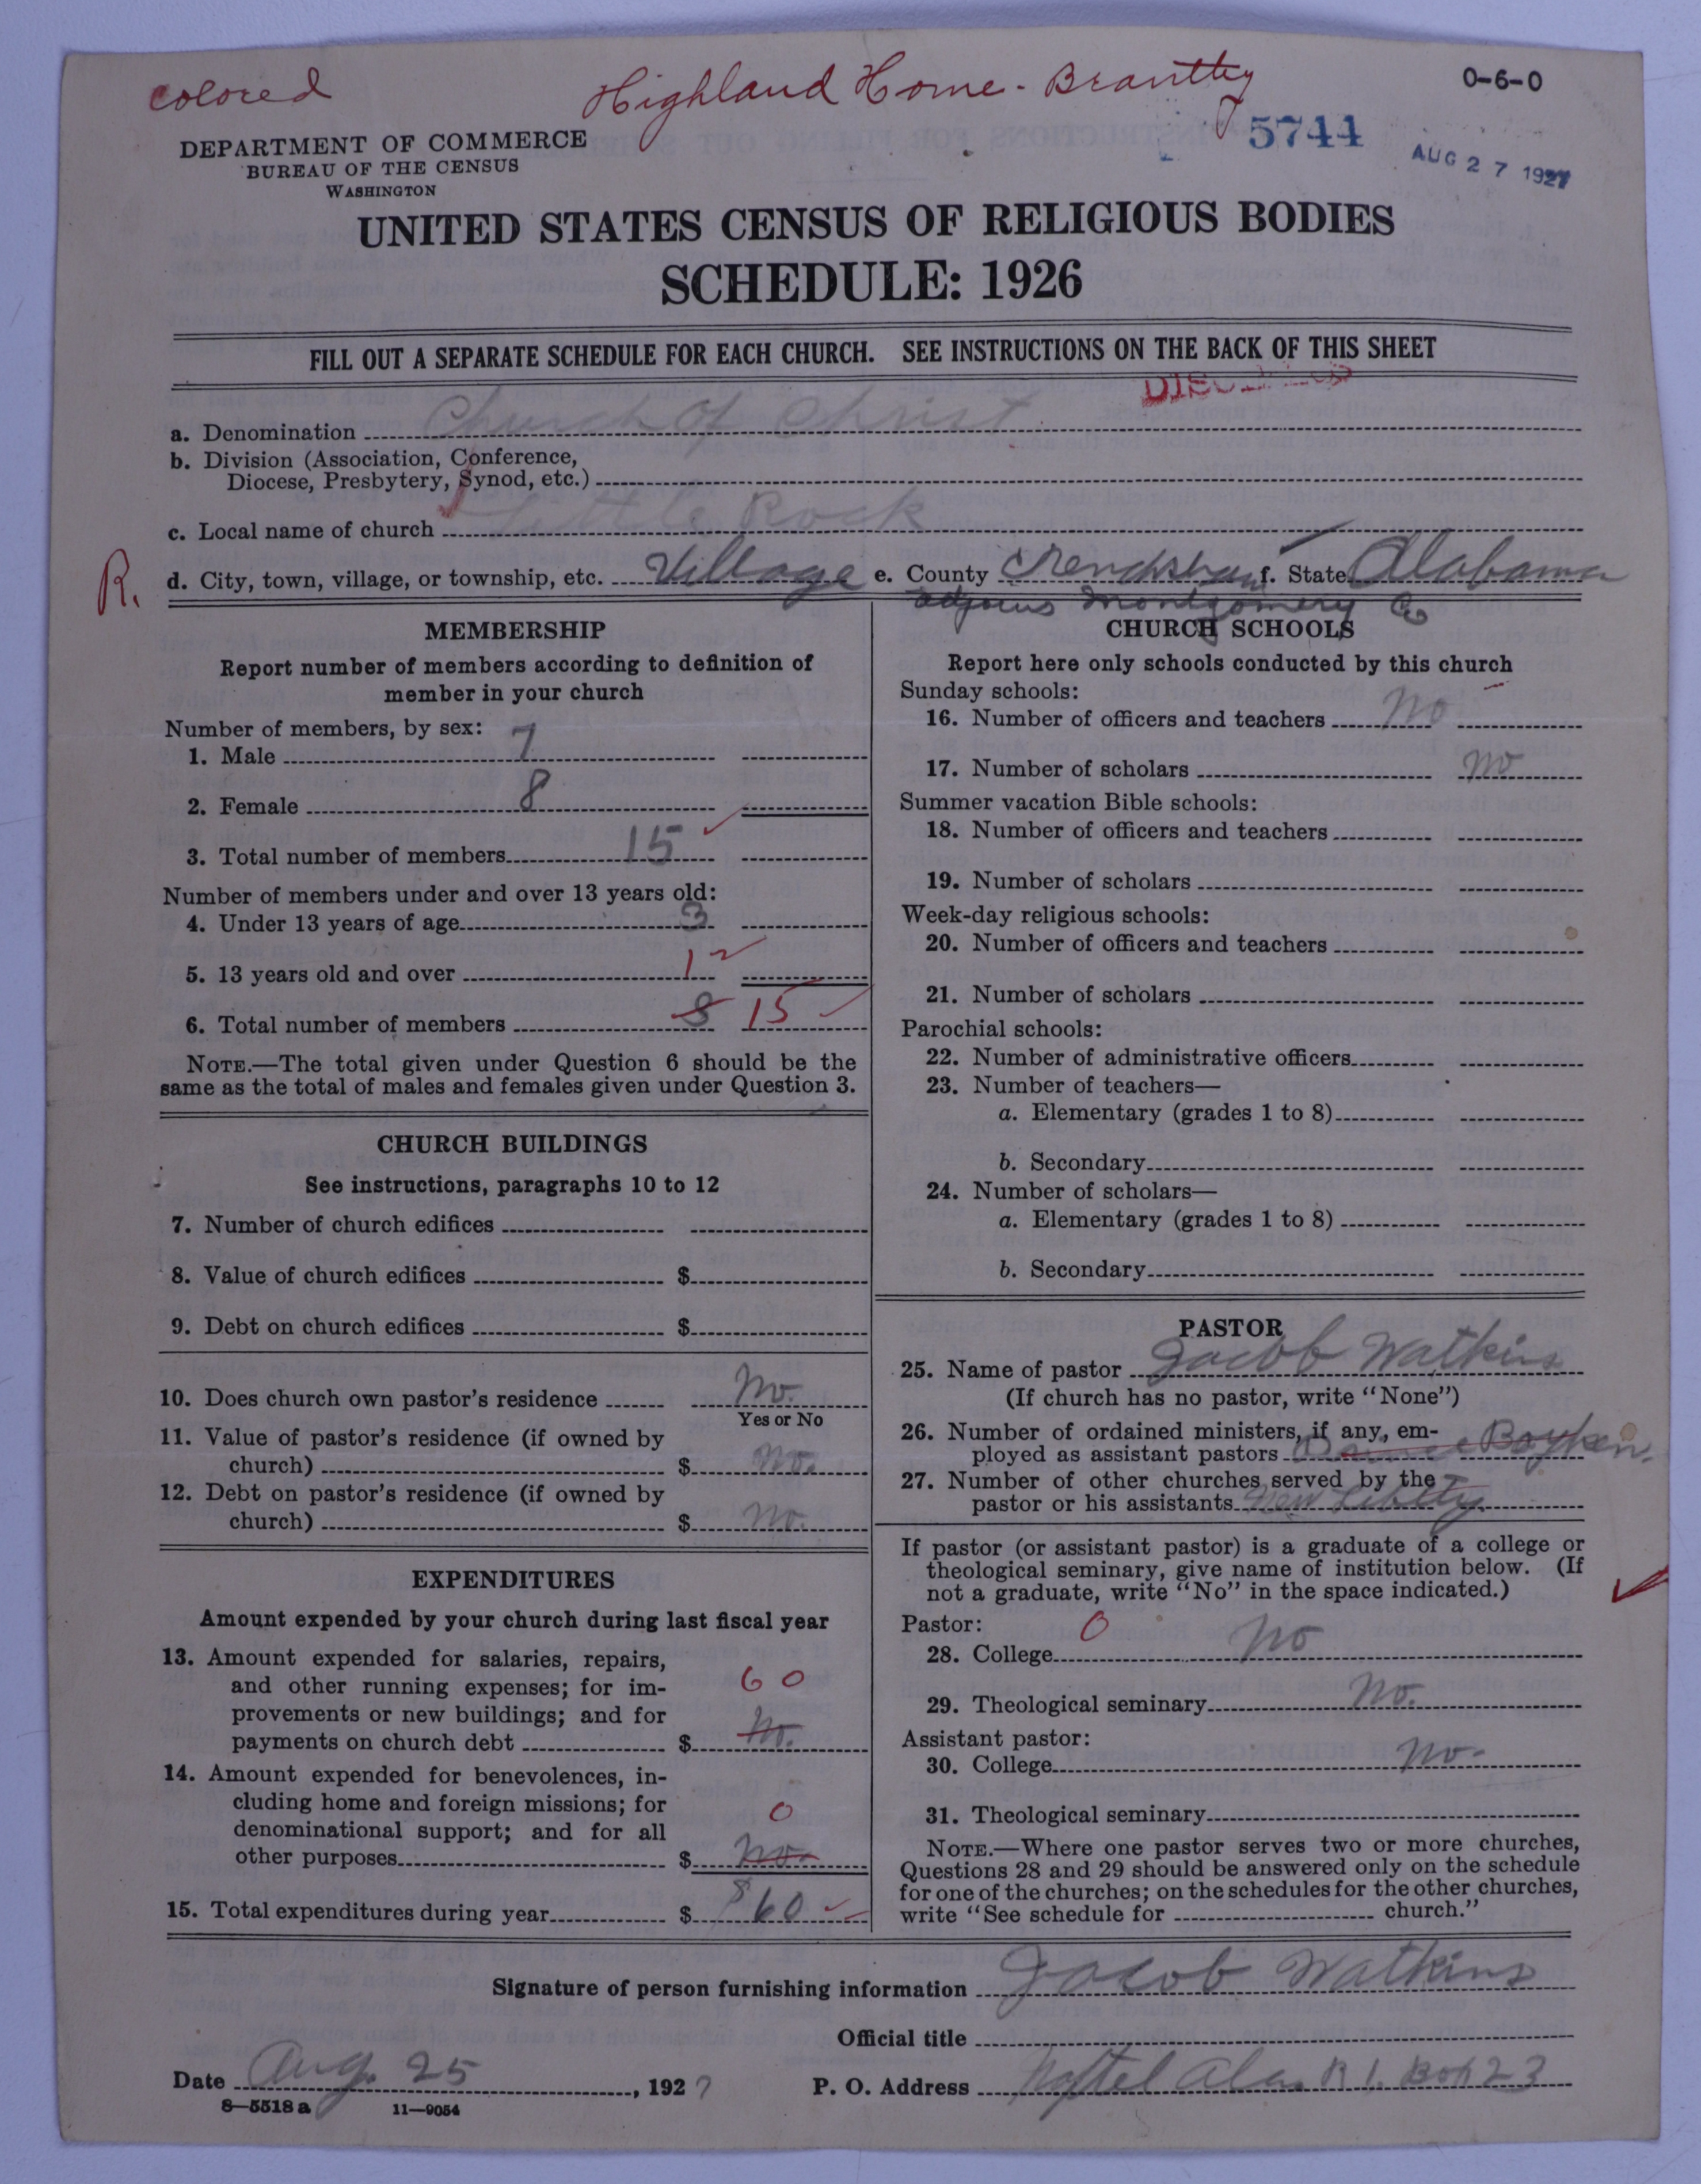 colored
Highland Home - Brantley
0-6-0
DEPARTMENT OF COMMERCE
BUREAU OF THE CENSUS
WASHINGTON
5744
AUG 27 1927
UNITED STATES CENSUS OF RELIGIOUS BODIES
SCHEDULE: 1926
FILL OUT A SEPARATE SCHEDULE FOR EACH CHURCH. SEE INSTRUCTIONS ON THE BACK OF THIS SHEET
a. Denomination Church of Christ
b. Division (Association, Conference,
Diocese, Presbytery, Synod, etc.)
c. Local name of church Little Rock
R.
d. City, town, village, or township, etc. Village e. County Crenshaw f. State Alabama
adjoins Montgomery Co
MEMBERSHIP
Report number of members according to definition of
member in your church
Number of members, by sex:
1. Male 7
2. Female 8
3. Total number of members 15
Number of members under and over 13 years old:
4. Under 13 years of age 3
5. 13 years old and over 12
6. Total number of members 8 15
NOTE.—The total given under Question 6 should be the
same as the total of males and females given under Question 3.
CHURCH BUILDINGS
See instructions, paragraphs 10 to 12
7. Number of church edifices
8. Value of church edifices $
9. Debt on church edifices $
10. Does church own pastor's residence No.
Yes or No
11. Value of pastor's residence (if owned by
church) $ No.
12. Debt on pastor's residence (if owned by
church) $ No.
EXPENDITURES
Amount expended by your church during last fiscal year
13. Amount expended for salaries, repairs,
and other running expenses; for im-
60
provements or new buildings; and for
payments on church debt $ No.
14. Amount expended for benevolences, in-
cluding home and foreign missions; for
0
denominational support; and for all
other purposes $ No.
15. Total expenditures during year $ $60
CHURCH SCHOOLS
Report here only schools conducted by this church
Sunday schools:
16. Number of officers and teachers No
17. Number of scholars No
Summer vacation Bible schools:
18. Number of officers and teachers
19. Number of scholars
Week-day religious schools:
20. Number of officers and teachers
21. Number of scholars
Parochial schools:
22. Number of administrative officers
23. Number of teachers—
a. Elementary (grades 1 to 8)
b. Secondary
24. Number of scholars—
a. Elementary (grades 1 to 8)
b. Secondary
PASTOR
25. Name of pastor Jacob Watkins
(If church has no pastor, write "None")
26. Number of ordained ministers, if any, em-
ployed as assistant pastors Boyken.
27. Number of other churches served by the
pastor or his assistants New Liberty
If pastor (or assistant pastor) is a graduate of a college or
theological seminary, give name of institution below. (If
not a graduate, write "No" in the space indicated.)
Pastor: 0
28. College No
29. Theological seminary No.
Assistant pastor:
30. College No.
31. Theological seminary
NOTE.—Where one pastor serves two or more churches,
Questions 28 and 29 should be answered only on the schedule
for one of the churches; on the schedules for the other churches,
write "See schedule for church."
Signature of person furnishing information Jacob Watkins
Official title
Date Aug. 25, 1927
P. O. Address Naftel Ala. R 1. Box 23
8—5518 a 11—9054